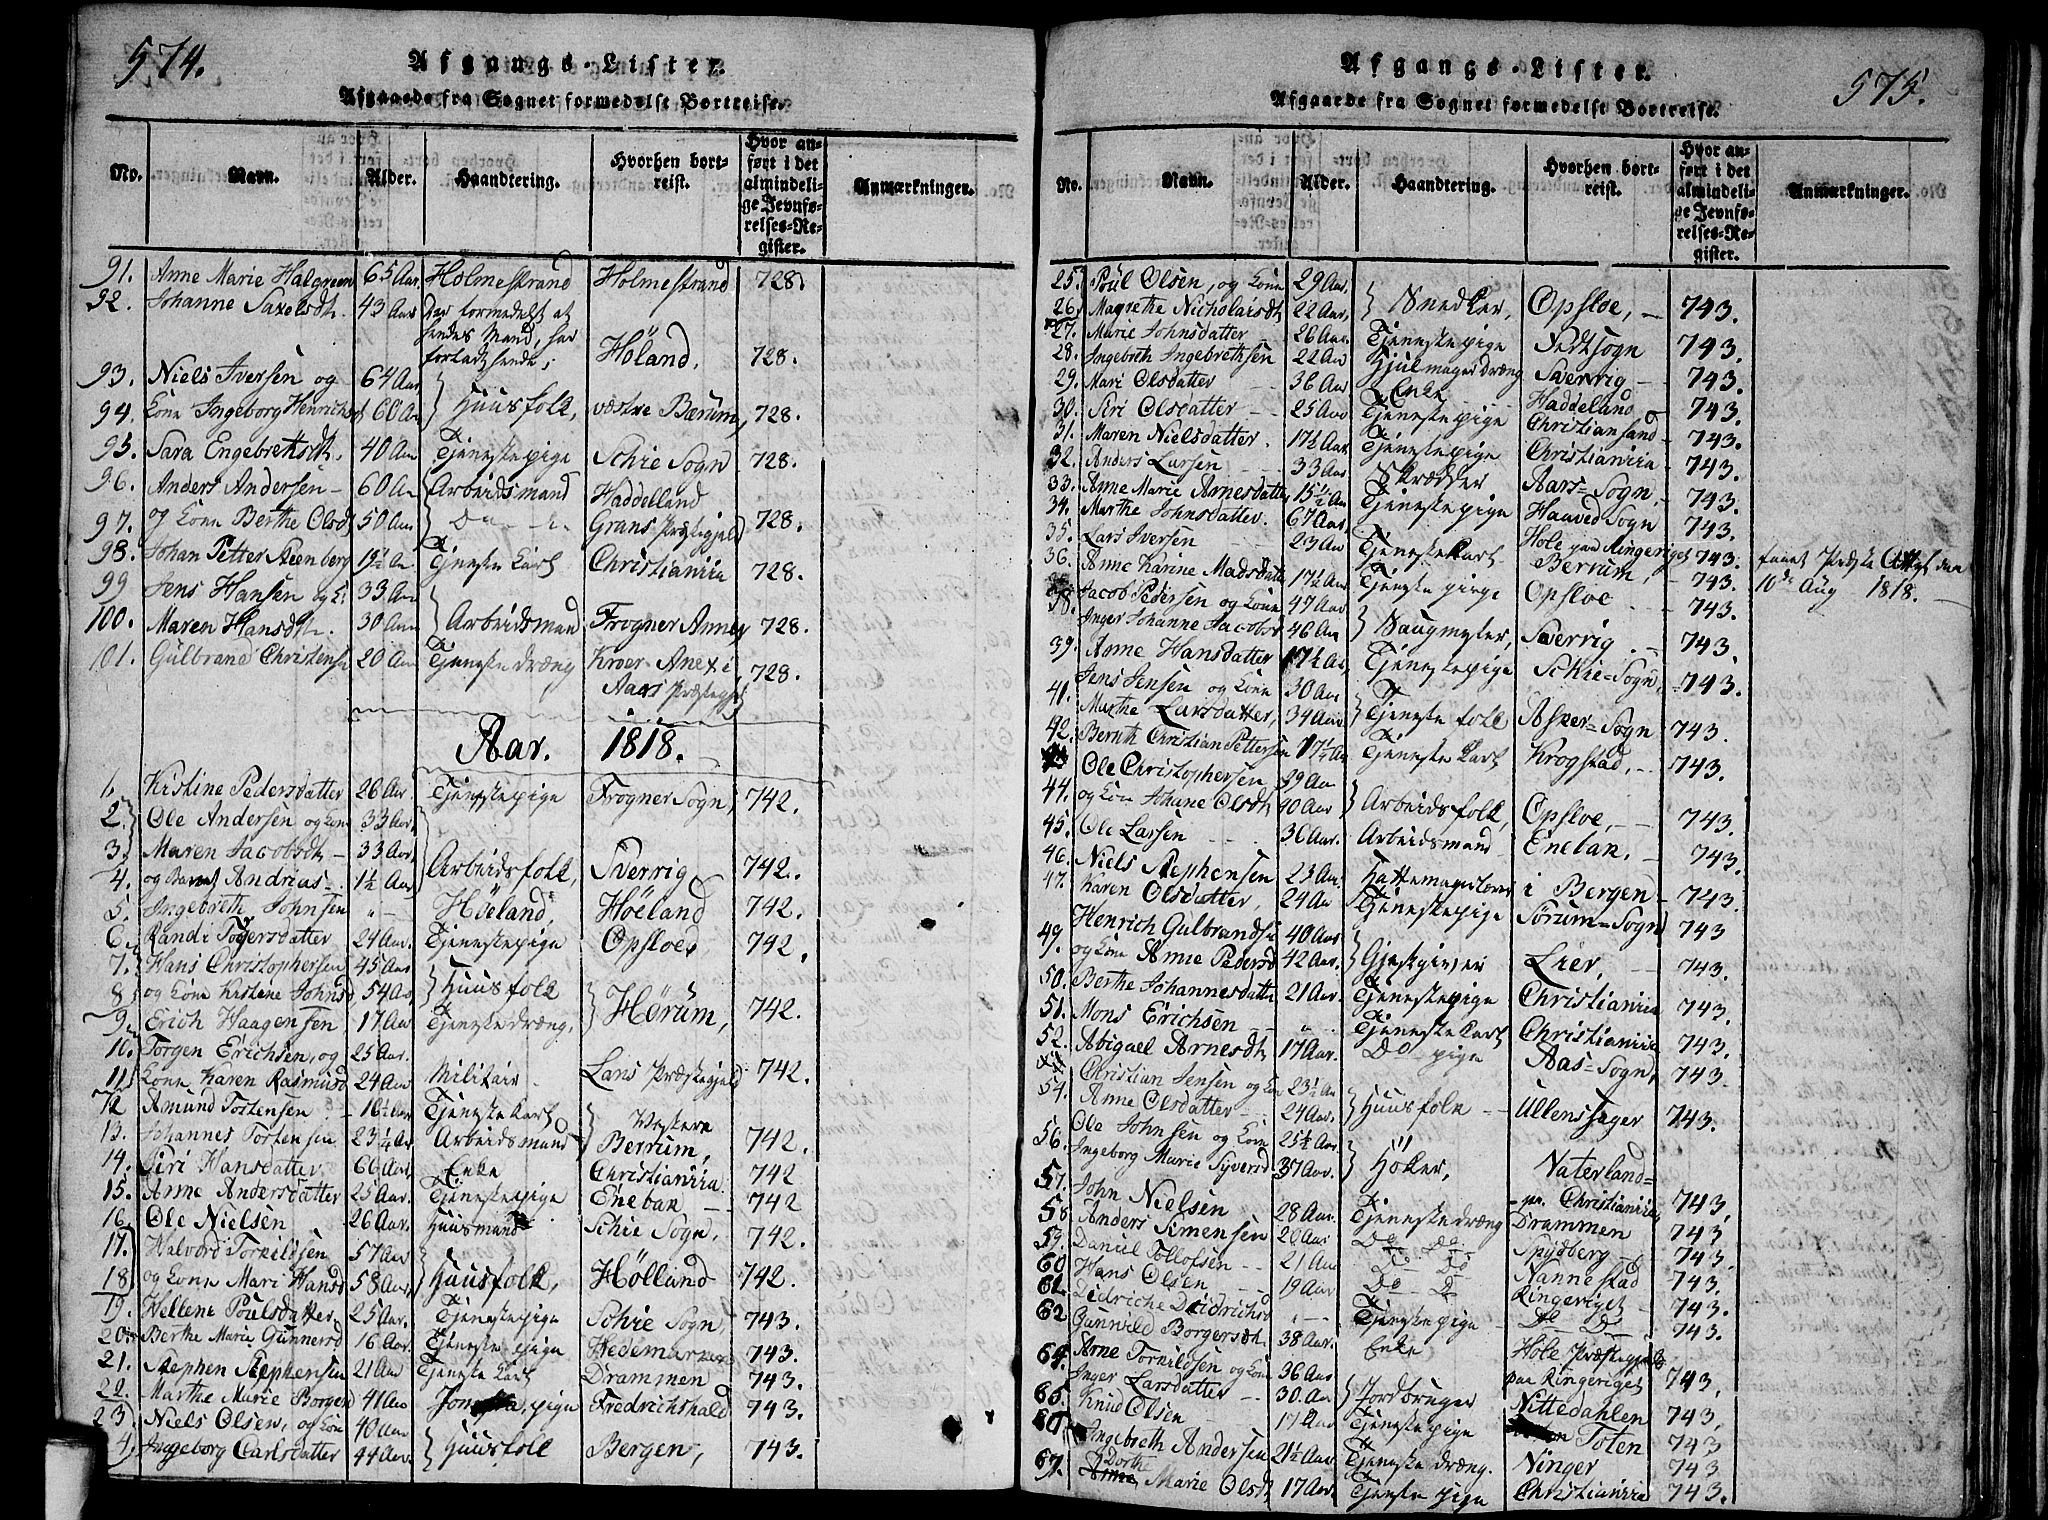 574.
Afgangs-Lister.
Afgaaede fra Sognet formedelst Bortreise.
No. Navn. Alder. Haandtering. Hvorhen bortreist. Hvor anført i det almindelige Jevnførelses-Register. Anmærkninger.
91. Anne Marie Halgreen 65 Aar Holmestrand Holmestrand 728
92. Johanne Saxelsdtr. 43 Aar formedelst at hendes Mand, har forladt hende; Höland. 728.
93. Niels Iversen og 64 Aar
94. Kone Ingeborg Henrichsd 60 Aar Huusfolk, vestre Bærum, 728.
95. Sara Engebrethsdtr. 40 Aar Tjenestepige Schie Sogn 728.
96. Anders Andersen 60 Aar Arbeidsmand Haddelland
97. og Kone Berthe Olsdt 50 Aar Do Grans Præstegjeld 728.
98. Johan Petter Steenberg 19½ Aar Tjeneste Karl Christiania 728.
99 Jens Hansen og K: 33 Aar
100. Maren Hansdtr. 30 Aar Arbeidsmand Frogner Annex 728.
101. Gulbrand Christensen 20 Aar Tjeneste dræng Kroer Anex i Aars Præstegjeld 728.
Aar. 1818.
1. Kirstine Pedersdatter 26 Aar Tjenestepige Frogner Sogn, 742.
2. Ole Andersen og Kone 33 Aar.
3. Maren Jacobsdtr 33 Aar. Arbeidsfolk, Sverrig 742.
4. og Barnet Andrias 1½ Aar
5. Ingebreth Johnsen " Höeland, Höeland 742.
6. Randi Togersdatter 24 Aar. Tjenestepige Opsloe, 742.
7. Hans Christophersen 45 Aar
8. og Kone Kirstine Johnsd 54 Aar, Huusfolk Hörum, 742.
9. Erich Haagensen 17 Aar Tjenestedræng,
10. Torgen Erichsen, og 25 Aar.
11. Kone Karen Rasmusd 24 Aar Militair Lans Præstegjeld 742.
12 Amund Tostensen 16½ Aar Tjeneste Karl Vestere
13. Johannes Tostensen 23¼ Aar Arbeidsmand Berrum, 742.
14. Siri Hansdatter 66 Aar. Enke Christiania. 742
15. Anne Andersdatter 25 Aar. Tjenestepige Enebak 742
16. Ole Nielsen 26 Aar. Huusmand Schie Sogn, 742.
17. Halvord Torkildsen 57 Aar
18. og Kone Mari Hansd 58 Aar, Huusfolk, Hölland 742.
19. Hellene Poulsdatter 25 Aar. Tjenestepige Schie Sogn, 743.
20. Berthe Marie Gunnersd 16 Aar. Tjeneste pige Hedemarken 743.
21. Stephen Stephensen 21 Aar Tjeneste Karl Drammen 743.
22. Marthe Marie Borgend 41 Aar pige Fredrichshald 743.
23. Niels Olsen, og Kone 40 Aar
4. Ingeborg Carlsdatter 44 Aar. Huusfolk Bergen, 743.
575.
Afgangs-Lister.
Afgaarde fra Sognet formedelst Bortreise.
No. Navn. Alder. Haandtering. Hvorhen bortreist. Hvor anført i det almindelige Jevnførelses-Register. Anmærkninger.
25. Poul Olsen, og Kone 29 Aar.
26. Magrethe Nicholaisdt 22 Aar, Snedker, Opsloe, 743.
27. Marie Johnsdatter 26 Aar. Tjenestepige Nessogn 743.
28. Ingebreth Ingebrethsen 22 Aar Hjulmager dræng Sverrig 743.
29. Mari Olsdatter 36 Aar Enke Haddeland 743.
30. Siri Olsdatter 25 Aar Tjenestepige Christiansand 743.
31. Maren Nielsdatter. 17½ Aar Tjenestepige Christiania 743.
32. Anders Larsen 33 Aar Skrædder Aars Sogn, 743.
33. Anne Marie Arnesdatter 15½ Aar Tjenestepige Haaved Sogn 743.
34. Marthe Johnsdatter. 67 Aar
35. Lars Iversen 23 Aar Tjeneste Karl Hole paa Ringeriget 743.
36. Anne Karine Madsdatter 17½ Aar Tjeneste pige Berrum, 743. faaet Præste Attest den 10de Aug 1818.
Jacob Pedersen og Kone 47 Aar Opsloe 743.
38. Inger Johanne Jacobsd 46 Aar Saugmester, Sverrig 743.
39. Anne Hansdatter 17½ Aar, Tjenestepige Schie-Sogn, 743.
Jens Jensen og Kone 30 Aar
41. Marthe Larsdatter, 34 Aar Tjeneste folk Asker-Sogn 743.
42. Bernth Christian Pettersen 17¼ Aar Tjeneste Karl Krogstad, 743.
Ole Christophersen 39 Aar
44. og Kone Johane Olsdt 40 Aar Arbeidsfolk, Opsloe, 743.
45. Ole Larsen 36 Aar. Arbeidsmand Enebak. 743.
46. Niels Stephensen 23 Aar. Hattemager i Bergen 743.
47. Karen Olsdatter, 24 Aar Tjenestepige Sörum-Sogn 743
Henrich Gulbrandse 40 Aar
49. og Kone Anne Pedersd 42 Aar. Gjestgiver Lier, 743.
50. Berthe Johannesdatter 21 Aar. Tjenestepige Christiania 743.
51. Mons Erichsen " Tjeneste Karl Christiania 743.
52. Abigael Arnesdt, 17 Aar. Do pige Aas-Sogn, 743.
Christian Jensen og Kone 23½ Aar
54. Anne Olsdatter 24 Aar. Huusfolk Ullensager 743.
Ole Johnsen og Kone 25½ Aar
56. Ingeborg Marie Syversd 37 Aar. Höker, Vaterland pr. Christiania, 743,
57. John Nielsen 28 Aar. Tjenestedræng Drammen 743
58. Anders Simensen 20 Aar Do Do Spydberg 743.
59. Daniel Tollofsen 21 Aar Do Do Nannestad 743.
60 Hans Olsen 19 Aar Do Do Ringeriget 743.
61. Didriche Deidrichsd " Tjenestepige Do Do 743.
62 Gunnild Borgersdt. 38 Aar. Enke Hole Præstegjeld paa Ringeriget 743.
Arne Torkildsen og Kone 36 Aar
64. Inger Larsdatter 30. Aar Jordbruger Nittedahlen 743,
65. Knud Olsen 17 Aar Tjenestepige Toten 743
Ingebreth Andersen 21½ Aar. Tjeneste dræng. Ninger 743
67. Dorth Marie Olsdt, 17 Aar. Tjeneste pige Christiania 743.